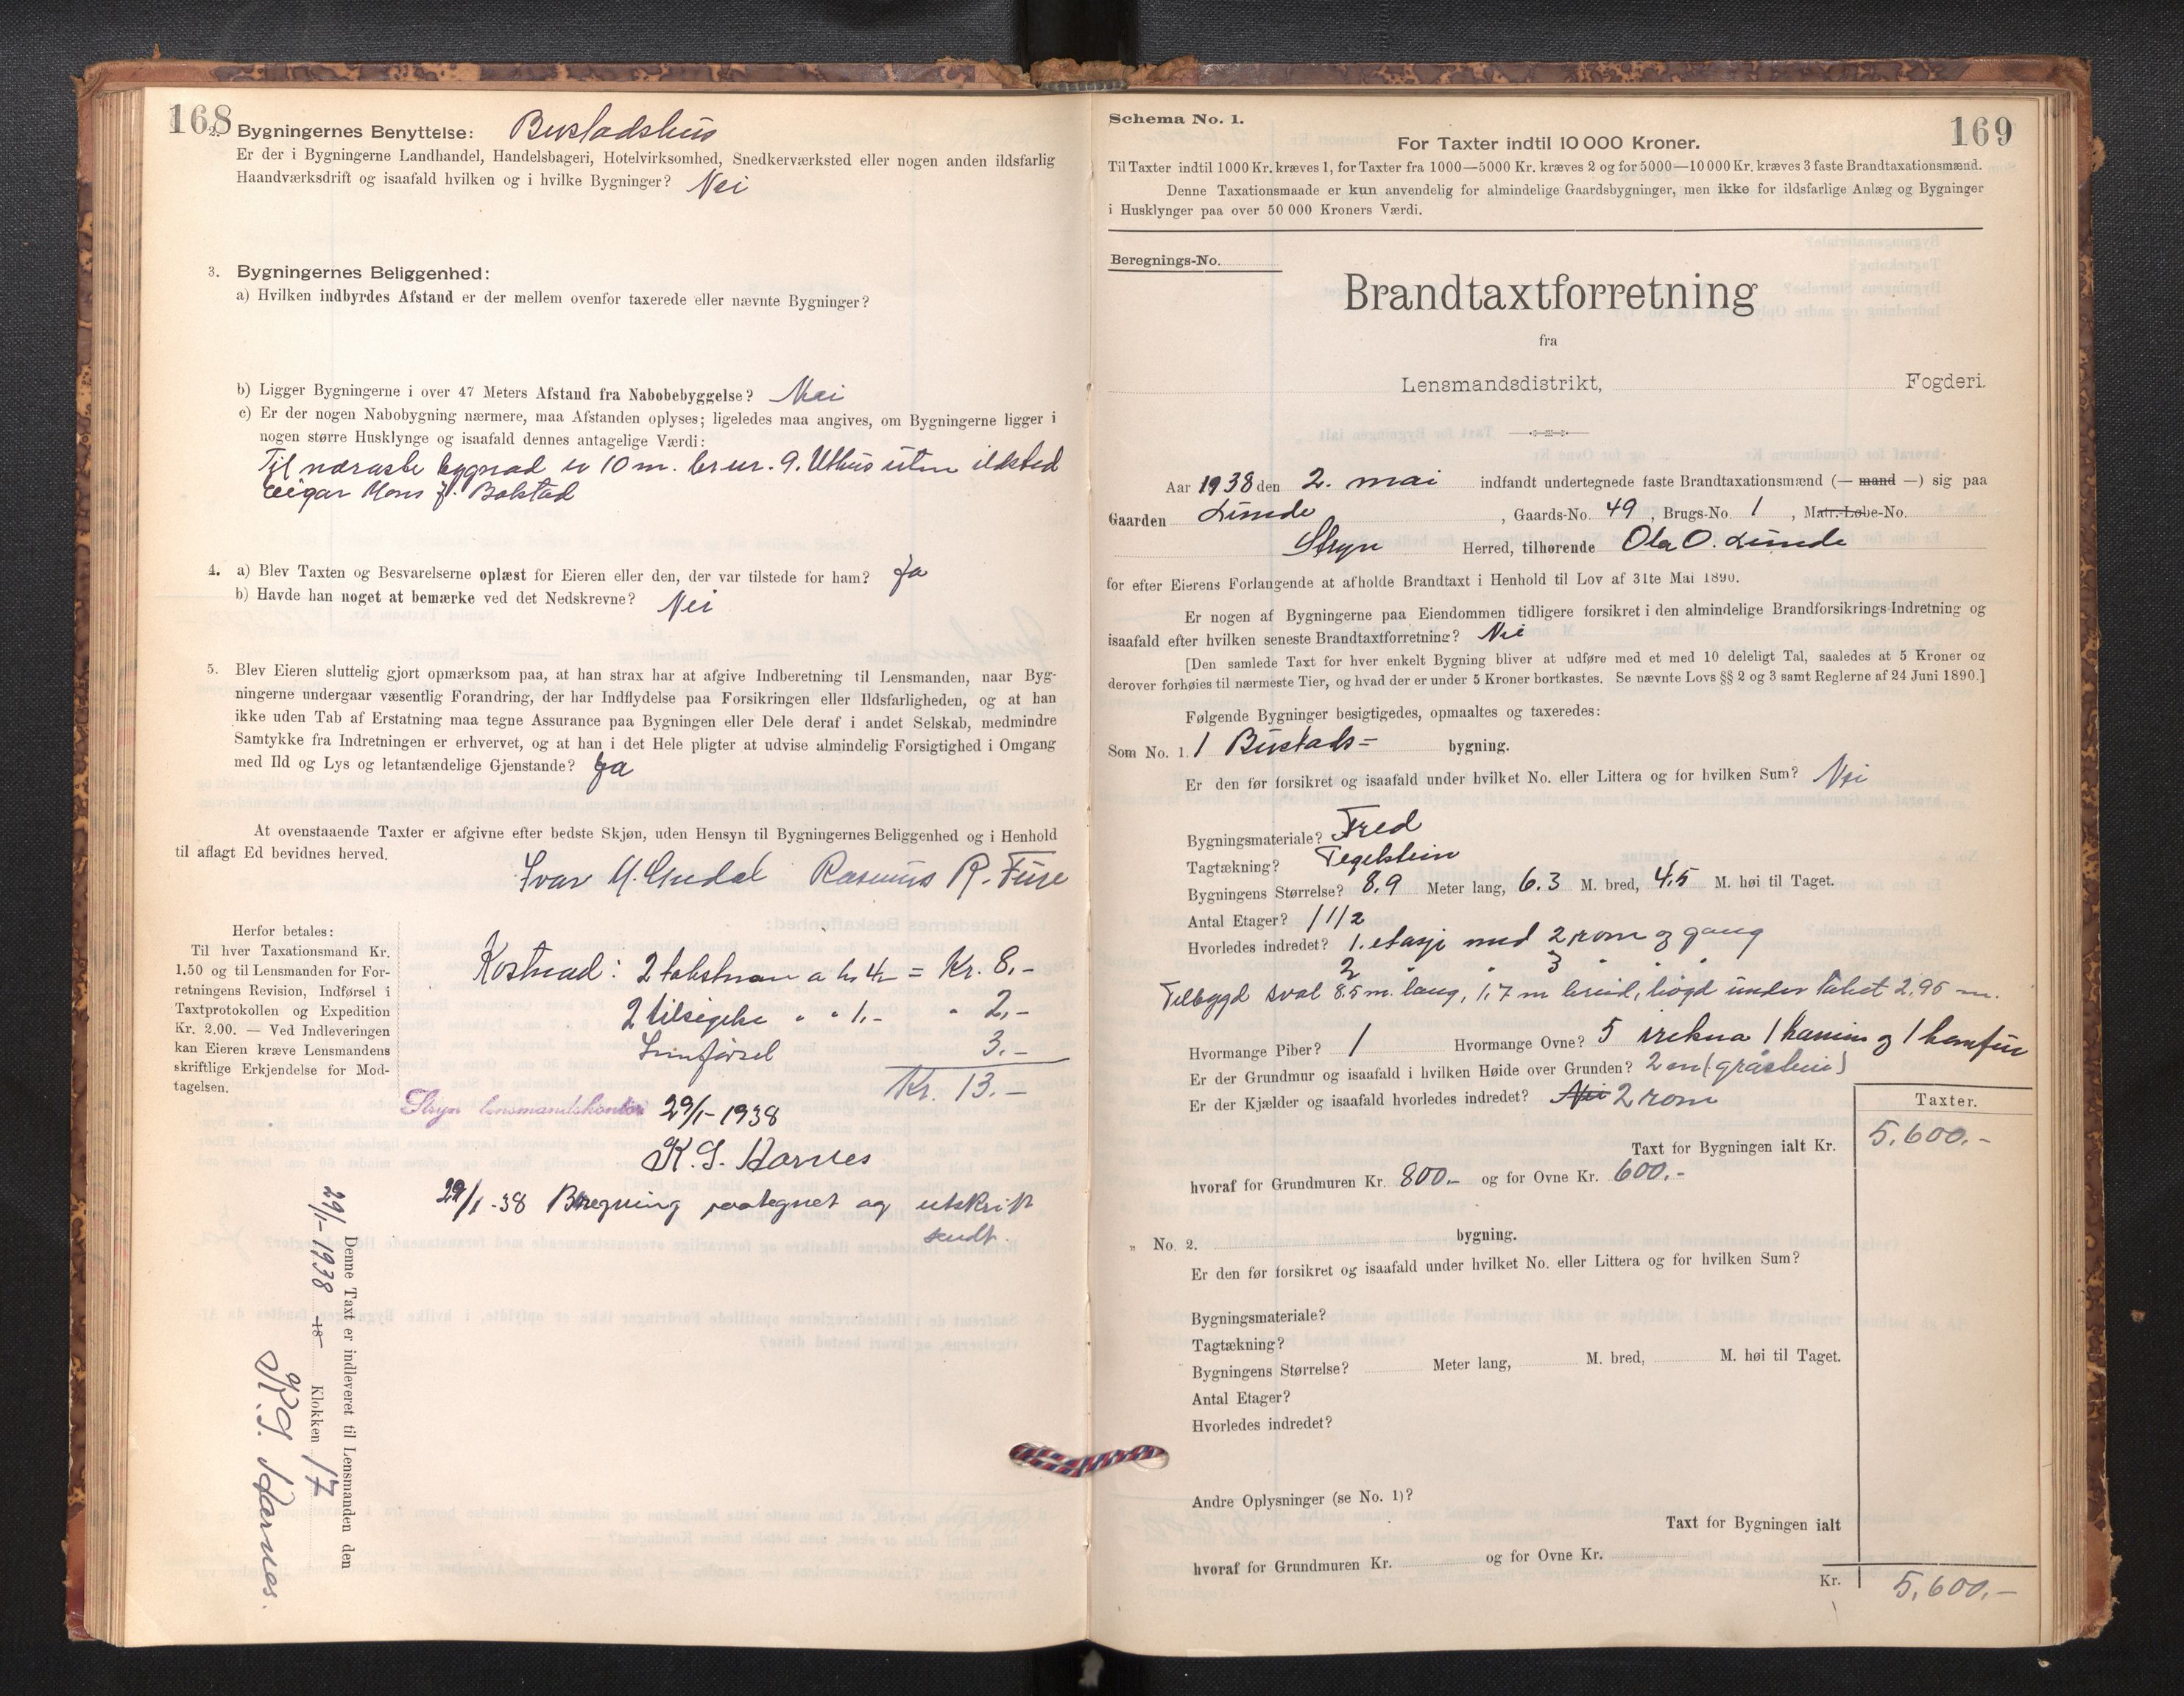 168
2. Bygningernes Benyttelse: Bustadshus
Er der i Bygningerne Landhandel, Handelsbageri, Hotelvirksomhed, Snedkerværksted eller nogen anden ildsfarlig
Haandværksdrift og isaafald hvilken og i hvilke Bygninger? Nei
3. Bygningernes Beliggenhed:
a) Hvilken indbyrdes Afstand er der mellem ovenfor taxerede eller nævnte Bygninger?
b) Ligger Bygningerne i over 47 Meters Afstand fra Nabobebyggelse? Nei
c) Er der nogen Nabobygning nærmere, maa Afstanden oplyses; ligeledes maa angives, om Bygningerne ligger i
nogen større Husklynge og isaafald dennes antagelige Værdi:
Til næraste bygnad er 10 m. br.nr. 9. Uthus uten ildsted
eigar Mons J. Bolstad
4. a) Blev Taxten og Besvarelserne oplæst for Eieren eller den, der var tilstede for ham? Ja
b) Havde han noget at bemærke ved det Nedskrevne? Nei
5. Blev Eieren sluttelig gjort opmærksom paa, at han strax har at afgive Indberetning til Lensmanden, naar Byg-
ningerne undergaar væsentlig Forandring, der har Indflydelse paa Forsikringen eller Ildsfarligheden, og at han
ikke uden Tab af Erstatning maa tegne Assurance paa Bygningen eller Dele deraf i andet Selskab, medmindre
Samtykke fra Indretningen er erhvervet, og at han i det Hele pligter at udvise almindelig Forsigtighed i Omgang
med Ild og Lys og letantændelige Gjenstande? Ja
At ovenstaaende Taxter er afgivne efter bedste Skjøn, uden Hensyn til Bygningernes Beliggenhed og i Henhold
til aflagt Ed bevidnes herved.
Ivar M. Gudal Rasmus R. Fure
Herfor betales:
Til hver Taxationsmand Kr.
1.50 og til Lensmanden for For-
retningens Revision, Indførsel i
Taxtprotokollen og Expedition
Kr. 2.00. — Ved Indleveringen
kan Eieren kræve Lensmandens
skriftlige Erkjendelse for Mod-
tagelsen.
Kostnad: 2 takstmen a kr 4,- = Kr. 8,-
2 tilsigelse " " 1,- " 2,-
Innførsel 3.-
Kr. 13.-
Stryn lensmandskontor 29/1-1938
K. J. Hornes
29/1-38 Beregning paategnet og utskrift
sendt.
Denne Taxt er indleveret til Lensmanden den
29/1-1938 18 Klokken 17
K. J. Hornes.
169
Schema No. 1.
For Taxter indtil 10 000 Kroner.
Til Taxter indtil 1000 Kr. kræves 1, for Taxter fra 1000—5000 Kr. kræves 2 og for 5000—10 000 Kr. kræves 3 faste Brandtaxationsmænd.
Denne Taxationsmaade er kun anvendelig for almindelige Gaardsbygninger, men ikke for ildsfarlige Anlæg og Bygninger
i Husklynger paa over 50 000 Kroners Værdi.
Beregnings-No.
Brandtaxtforretning
fra
Lensmandsdistrikt, Fogderi.
Aar 1938 den 2. mai indfandt undertegnede faste Brandtaxationsmænd (— mand —) sig paa
Gaarden Linde, Gaards-No. 49, Brugs-No. 1, Matr.-Løbe-No.
Stryn Herred, tilhørende Ola O. Linde
for efter Eierens Forlangende at afholde Brandtaxt i Henhold til Lov af 31te Mai 1890.
Er nogen af Bygningerne paa Eiendommen tidligere forsikret i den almindelige Brandforsikrings-Indretning og
isaafald efter hvilken seneste Brandtaxtforretning? Nei
[Den samlede Taxt for hver enkelt Bygning bliver at udføre med et med 10 deleligt Tal, saaledes at 5 Kroner og
derover forhøies til nærmeste Tier, og hvad der er under 5 Kroner bortkastes. Se nævnte Lovs §§ 2 og 3 samt Reglerne af 24 Juni 1890.]
Følgende Bygninger besigtigedes, opmaaltes og taxeredes:
Som No. 1. 1 Bustads= bygning.
Er den før forsikret og isaafald under hvilket No. eller Littera og for hvilken Sum? Nei
Bygningsmateriale? Tred
Tagtækning? Tegelstein
Bygningens Størrelse? 8.9 Meter lang, 6.3 M. bred, 4.5 M. høi til Taget.
Antal Etager? 1 1/2
Hvorledes indredet? 1. etasje med 2 rom og gang
2 " " 3 " " "
Tilbygd sval 8.5 m. lang, 1,7 m breid, høgd under taket 2,95 m.
Hvormange Piber? 1 Hvormange Ovne? 5 1 kamin og 1 komfur
Er der Grundmur og isaafald i hvilken Høide over Grunden? 2 m (gråstein)
Er der Kjælder og isaafald hvorledes indredet? Nei 2 rom
Taxter.
Taxt for Bygningen ialt Kr. 5.600.-
hvoraf for Grundmuren Kr. 800.- og for Ovne Kr. 600.-
" No. 2. bygning.
Er den før forsikret og isaafald under hvilket No. eller Littera og for hvilken Sum?
Bygningsmateriale?
Tagtækning?
Bygningens Størrelse? Meter lang, M. bred, M. høi til Taget.
Antal Etager?
Hvorledes indredet?
Andre Oplysninger (se No. 1)?
Taxt for Bygningen ialt
hvoraf for Grundmuren Kr. og for Ovne Kr.
Kr. 5.600.-